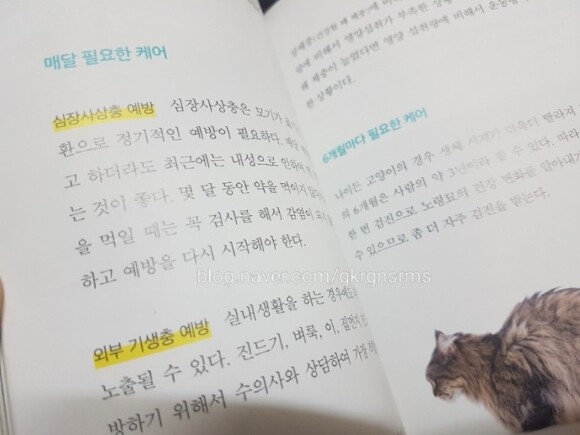 매달 필요한 케어
심장사상충 예방 심장사상충은 모기가
환으로 정기적인 예방이 필요하다.
고 하더라도 최근에는 내성으로 인하여
는 것이 좋다. 몇 달 동안 약을 먹이지
을 먹일 때는 꼭 검사를 해서 감염이
하고 예방을 다시 시작해야 한다.
blog.naver.com/qkrgnsrms
외부 기생충 예방 실내생활을 하는 경우에도
노출될 수 있다. 진드기, 벼룩, 이,
방하기 위해서 수의사와 상담하여 가장
에 비해서 영양섭취가 부족한
왜 체중이 늘었다면 영양 섭취량에 비해서
한 상황이다.
6개월마다 필요한 케어
나이든 고양이의 경우 생체 시계가 더욱더 빨라져
의 6개월은 사람의 약 3년이라
한 번 검진으로 노령묘의 건강 변화를 알아내기
수 있으므로 좀 더 자주 검진을 받는다.